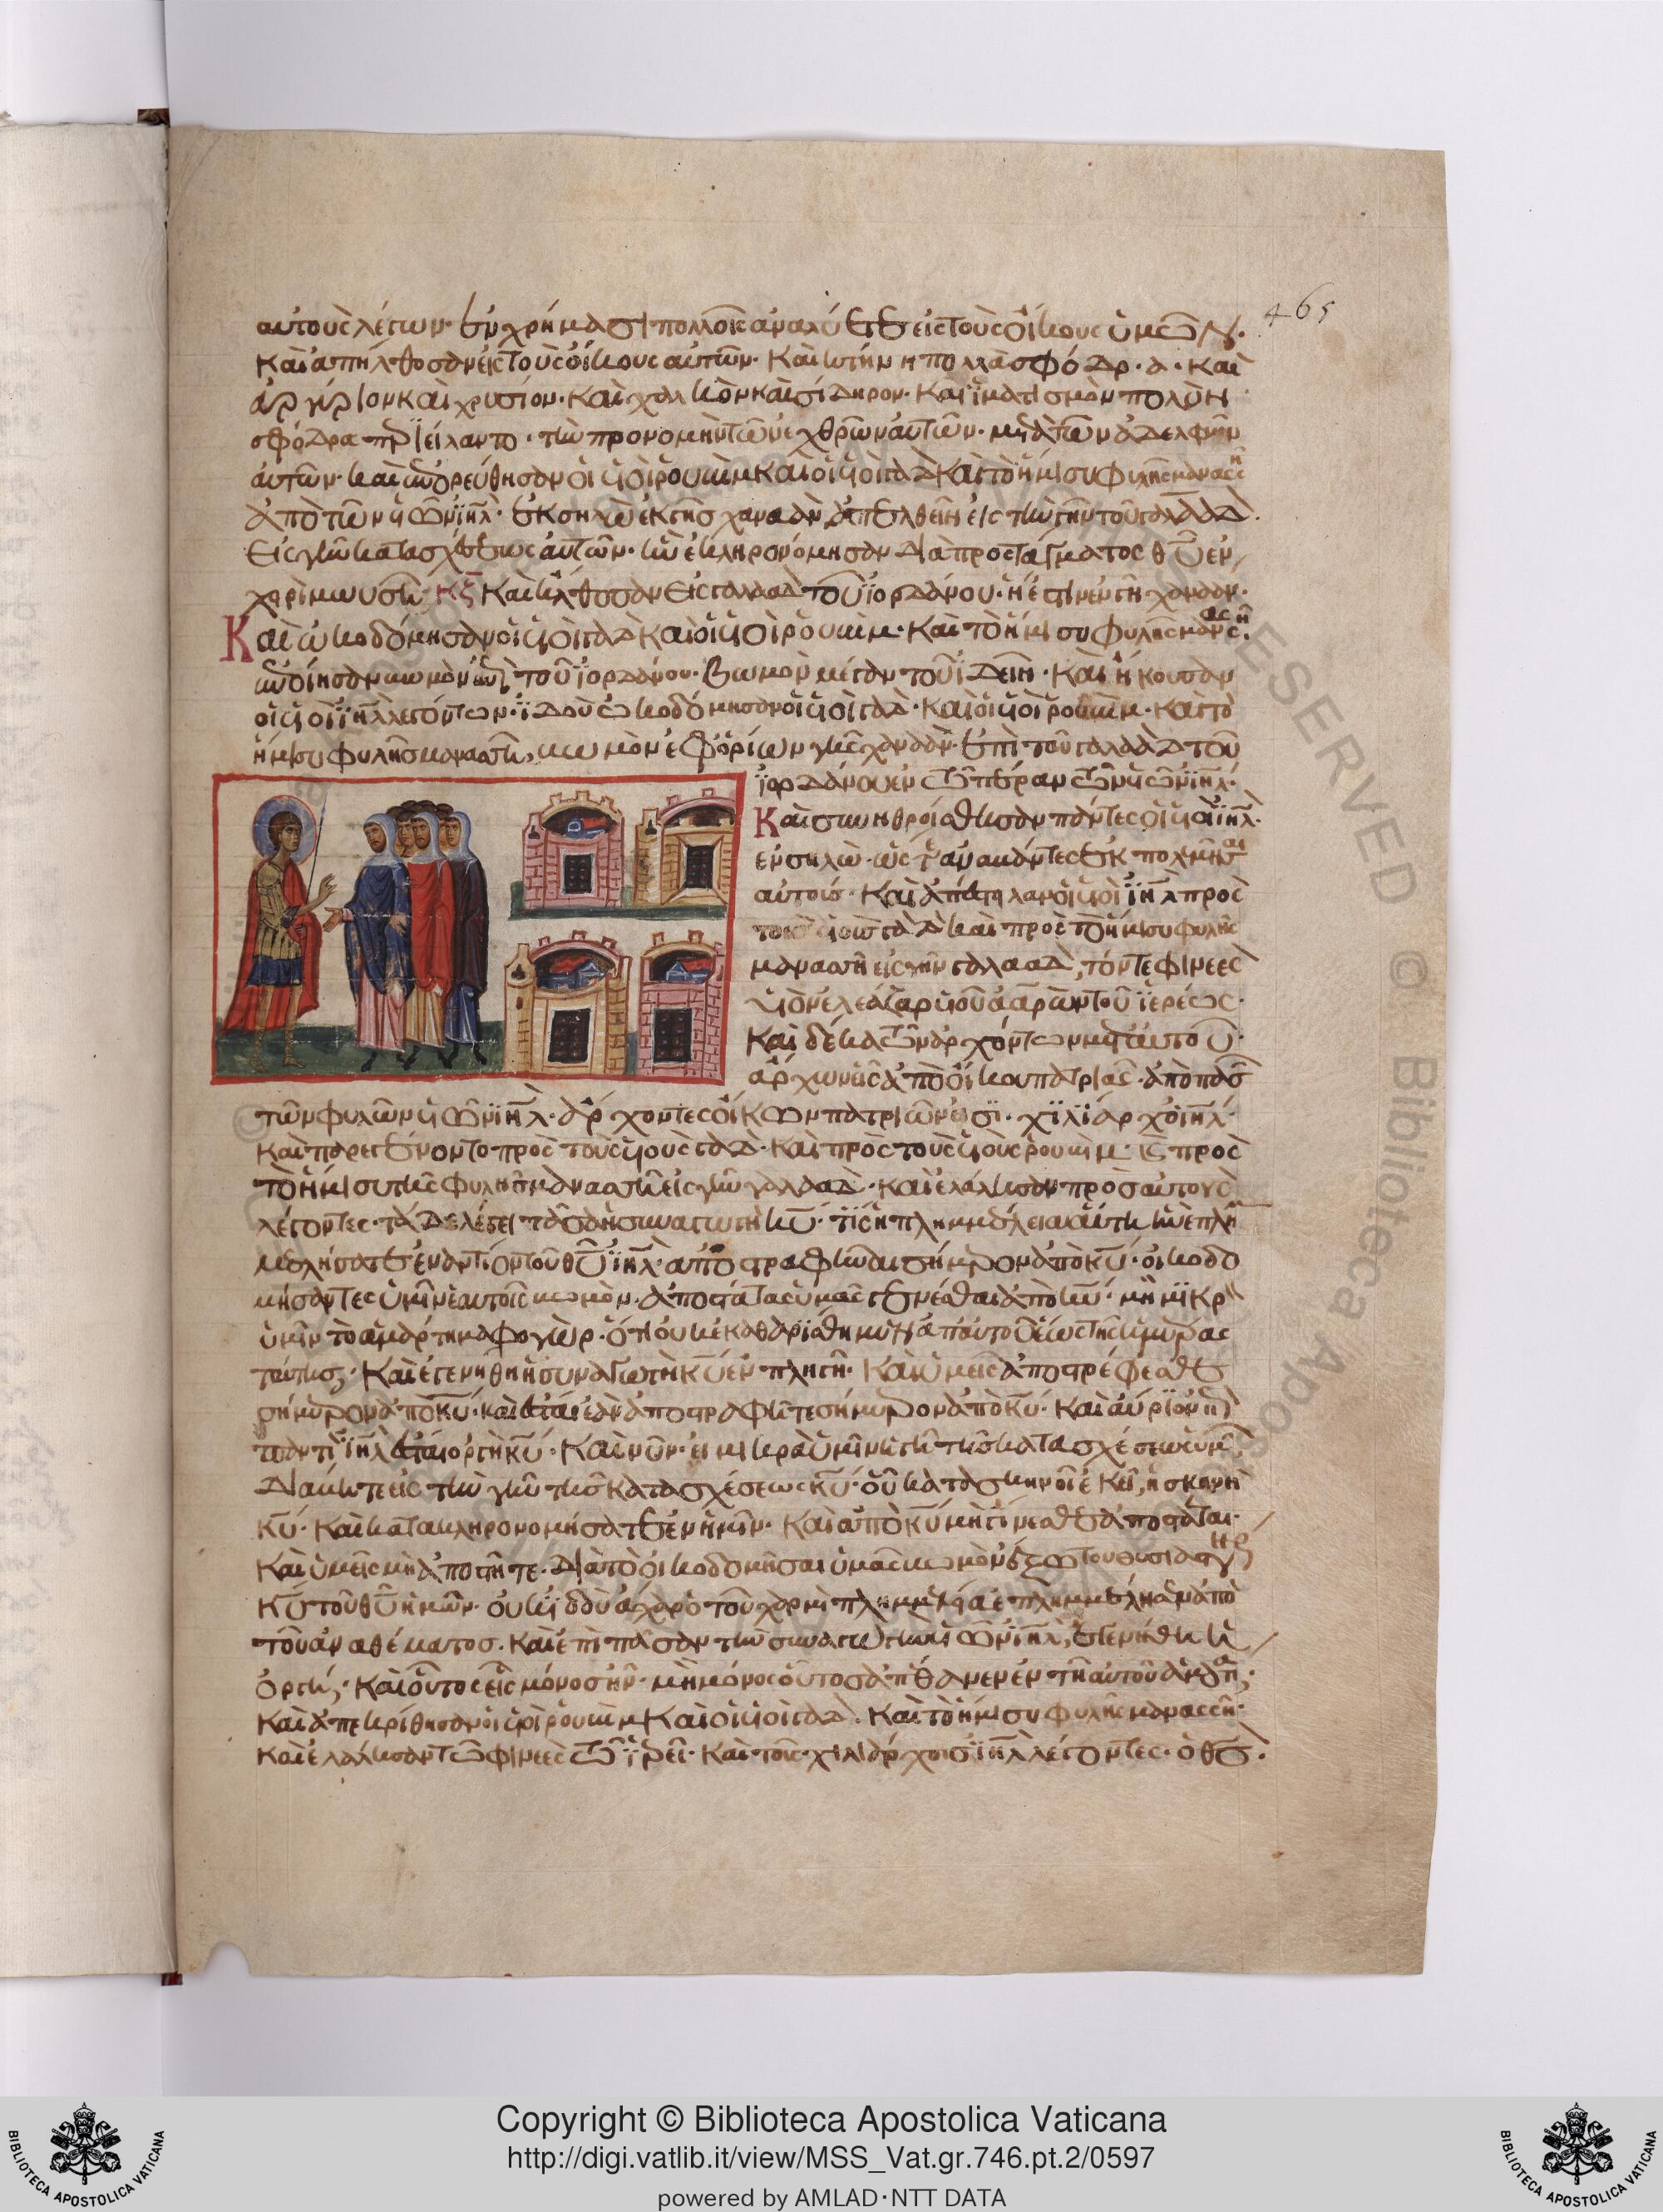 465
αὐτοὺς λέγων· ἐν χρήμασι πολλοῖς ἀναλύετε εἰς τοὺς οἴκους ὑμῶν·
Καὶ ἀπήλθοσαν εἰς τοὺς οἴκους αὐτῶν· Καὶ κτήνη πολλὰ σφόδρα· Καὶ
ἀργύριον καὶ χρυσίον· Καὶ χαλκὸν καὶ σίδηρον· Καὶ ἱματισμὸν πολὺν
σφόδρα διείλαντο· τὴν προνομὴν τῶν ἐχθρῶν αὐτῶν· μετὰ τῶν ἀδελφῶν
αὐτῶν· καὶ ἐπορεύθησαν οἱ υἱοὶ ρουβὶμ καὶ οἱ υἱοὶ γὰδ καὶ τὸ ἥμισυ φυλῆς μανασσῆ
ἀπὸ τῶν υἱῶν ἰηλ· ἐκ σηλὼ ἐκ τῆς χαναὰν ἀπελθεῖν εἰς τὴν γῆν τοῦ γαλαάδ·
εἰς γῆν κατασχέσεως αὐτῶν· ἣν ἐκληρονόμησαν διὰ προστάγματος θυ ἐν
χειρὶ μωυσῆ· Καὶ ἦλθοσαν εἰς γαλαὰδ τοῦ ἰορδάνου· ἥ ἐστιν ἐν τῇ χαναάν·
Καὶ ὠκοδόμησαν οἱ υἱοὶ γὰδ καὶ οἱ υἱοὶ ρουβίμ· Καὶ τὸ ἥμισυ φυλῆς μανασσῆ·
τοῦ ἰορδάνου· βωμὸν μέγαν τοῦ ἰδεῖν· Καὶ ἤκουσαν
οἱ υἱοὶ ἰηλ λεγόντων· ἰδοὺ ὠκοδόμησαν οἱ υἱοὶ γάδ· Καὶ οἱ υἱοὶ ρουβίμ· Καὶ τὸ
ἥμισυ φυλῆς μανασσῆ, βωμὸν ἐφ' ὁρίων γῆς χαναάν· ἐπὶ τοῦ γαλαὰδ τοῦ
ἰορδάνου ἐν τῶ πέραν τῶν υἱῶν ἰηλ·
Καὶ συνηθροίσθησαν πάντες οἱ υἱοὶ ἰηλ·
αὐτοῖς· Καὶ ἀπέστειλαν οἱ υἱοὶ ἰηλ πρὸς
τοὺς υἱοὺς γὰδ καὶ πρὸς τὸ ἥμισυ φυλῆς
μανασσῆ εἰς γῆν γαλαάδ, τόν τε φινεὲς
υἱὸν ἐλεάζαρ υἱοῦ ἀαρὼν τοῦ ἱερέως·
Καὶ δέκα τῶν ἀρχόντων μετ' αὐτοῦ·
ἄρχων εἷς ἀπὸ οἴκου πατριᾶς· ἀπὸ πασῶν
τῶν φυλῶν υἱῶν ἰηλ· ἄρχοντες οἴκων πατριῶν εἰσι· χιλίαρχοι ἰηλ·
Καὶ παρεγένοντο πρὸς τοὺς υἱοὺς γάδ· Καὶ πρὸς τοὺς υἱοὺς ρουβίμ· καὶ πρὸς
τὸ ἥμισυ τῆς φυλῆς μανασσῆ εἰς γῆν γαλαάδ· Καὶ ἐλάλησαν πρὸς αὐτοὺς
λέγοντες· τάδε λέγει πᾶσα ἡ συναγωγὴ κυ· τίς ἡ πλημμέλεια αὕτη ἣν ἐπλημ
μελήσατε ἐναντίον τοῦ θυ ἰηλ· ἀποστραφῆναι σήμερον ἀπὸ κυ· οἰκοδο
μήσαντες ὑμῖν ἑαυτοῖς βωμόν· ἀποστάτας ὑμᾶς γενέσθαι ἀπὸ κυ· μὴ μικρὸν
ὑμῖν τὸ ἁμάρτημα φογώρ· ὅτι οὐκ ἐκαθαρίσθημεν ἀπ' αὐτοῦ ἕως τῆς ἡμέρας
ταύτης· Καὶ ἐγενήθη ἡ συναγωγὴ κυ ἐν πληγῇ· Καὶ ὑμεῖς ἀποστρέφεσθε
σήμερον ἀπὸ κυ· καὶ ἔσται ἐὰν ἀποστραφῆτε σήμερον ἀπὸ κυ· Καὶ αὔριον ἐπὶ
πάντα ἰηλ ἔσται ὀργὴ κυ· Καὶ νῦν· εἰ μικρὰ ὑμῖν ἡ γῆ τῆς κατασχέσεως ὑμῶν,
διάβητε εἰς τὴν γῆν τῆς κατασχέσεως κυ· οὗ κατασκηνοῖ ἐκεῖ, ἡ σκηνὴ
κυ· Καὶ κατακληρονομήσατε ἐν ἡμῖν· Καὶ ἀπὸ κυ μὴ γίνεσθε ἀποστάται·
Καὶ ὑμεῖς μὴ ἀπόστητε· διὰ τὸ οἰκοδομῆσαι ὑμᾶς βωμὸν ἔξω τοῦ θυσιαστηρίου
κυ τοῦ θυ ἡμῶν· οὐκ ἰδοὺ ἄχαρ ὁ τοῦ χαρμὶ πλημμελείᾳ ἐπλημμέλησεν ἀπὸ
τοῦ ἀναθέματος· Καὶ ἐπὶ πᾶσαν τὴν συναγωγὴν υἱῶν ἰηλ, ἐγενήθη ἡ
ὀργή· Καὶ οὗτος εἷς μόνος ἦν· μὴ μόνος οὗτος ἀπέθανεν ἐν τῇ αὐτοῦ ἁμαρτίᾳ;
Καὶ ἀπεκρίθησαν οἱ υἱοὶ ρουβὶμ Καὶ οἱ υἱοὶ γάδ· Καὶ τὸ ἥμισυ φυλῆς μανασσῆ·
Καὶ ἐλάλησαν τῶ φινεὲς τῶ ἱερεῖ· Καὶ τοῖς χιλιάρχοις ἰηλ λέγοντες· ὁ θς·
Copyright © Biblioteca Apostolica Vaticana
http://digi.vatlib.it/view/MSS_Vat.gr.746.pt.2/0597
powered by AMLAD·NTT DATA
BIBLIOTECA APOSTOLICA VATICANA
BIBLIOTECA APOSTOLICA VATICANA